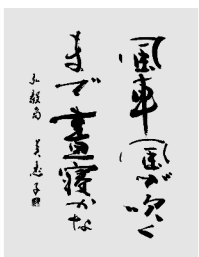 風車風が吹く
まで晝寝かな
弘毅句 美恵子